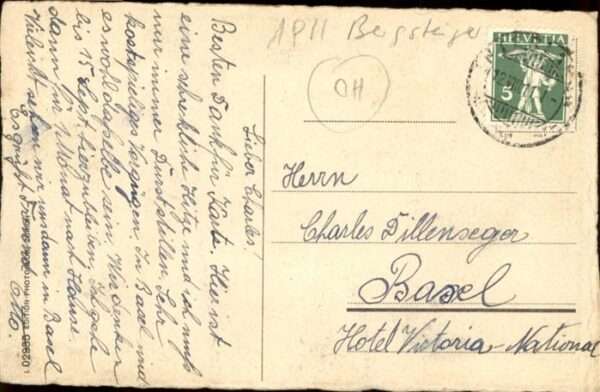 1911 Bergsteiger
OH
HELVETIA
5
Lieber Charles!
Besten Dank für Karte. Hier ist
eine schreckliche Hitze und ich muß
nur immer Durst stillen. Sehr
kostspieliges Vergnügen. In Basel wird
es wohl dasselbe sein. Wir denken
bis 15 Sept hierzubleiben, Ich gehe
dann für 1 Monat nach Hause.
Vielleicht sehen wir uns dann in Basel
Es grüßt Freund
Otto.
02980
Herrn
Charles Dillenseger
Basel
Hotel Victoria-National